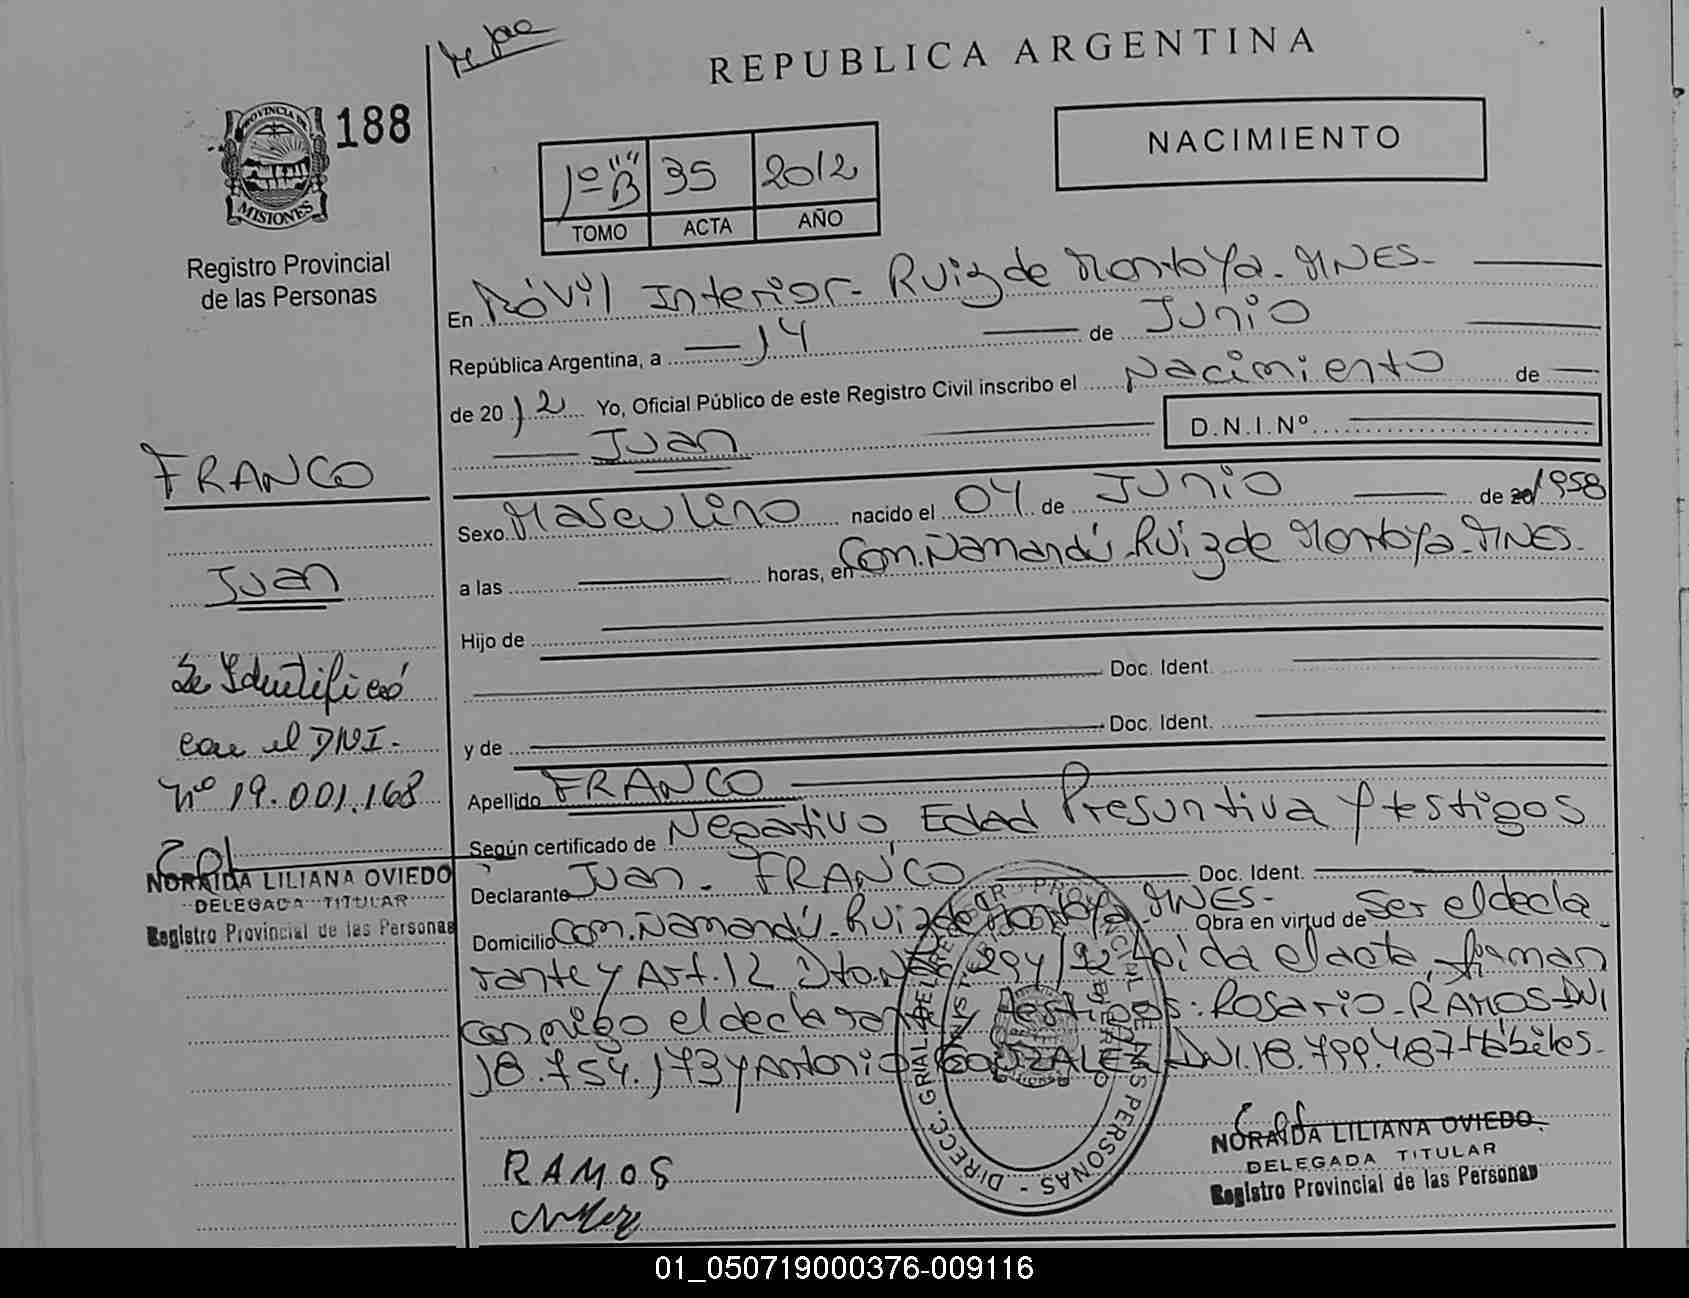 REPUBLICA ARGENTINA
PROVINCIA DE
MISIONES
188
Registro Provincial
de las Personas
NACIMIENTO
1º "B" 35 2012
TOMO ACTA AÑO
En Móvil Interior - Ruiz de Montoya - MNES -
República Argentina, a — 14 — de Junio
de 2012 Yo, Oficial Público de este Registro Civil inscribo el Nacimiento de —
— Juan — D.N.I.Nº
Sexo Masculino nacido el 04 de Junio — de 20 1958
a las — horas, en Com. Ñamandú - Ruiz de Montoya - MNES -
Hijo de
Doc. Ident.
y de Doc. Ident.
Apellido FRANCO
Según certificado de Negativo, Edad Presuntiva y testigos
Declarante Juan - FRANCO Doc. Ident.
Domicilio Com. Ñamandú - Ruiz de Montoya - MNES - Obra en virtud de Ser el decla
rante y Art. 12 Dto. Nº 294/92 Leída el acta, firman
conmigo el declarante y testigos: Rosario - RAMOS - DNI
18.754.173 y Antonio GONZALEZ DNI. 18.799.487 - Hábiles -
RAMOS
NORAIDA LILIANA OVIEDO
DELEGADA TITULAR
Registro Provincial de las Personas
FRANCO
Juan
Se Identificó
con el DNI -
Nº 19.001.168
NORAIDA LILIANA OVIEDO
DELEGADA TITULAR
Registro Provincial de las Personas
01_050719000376-009116